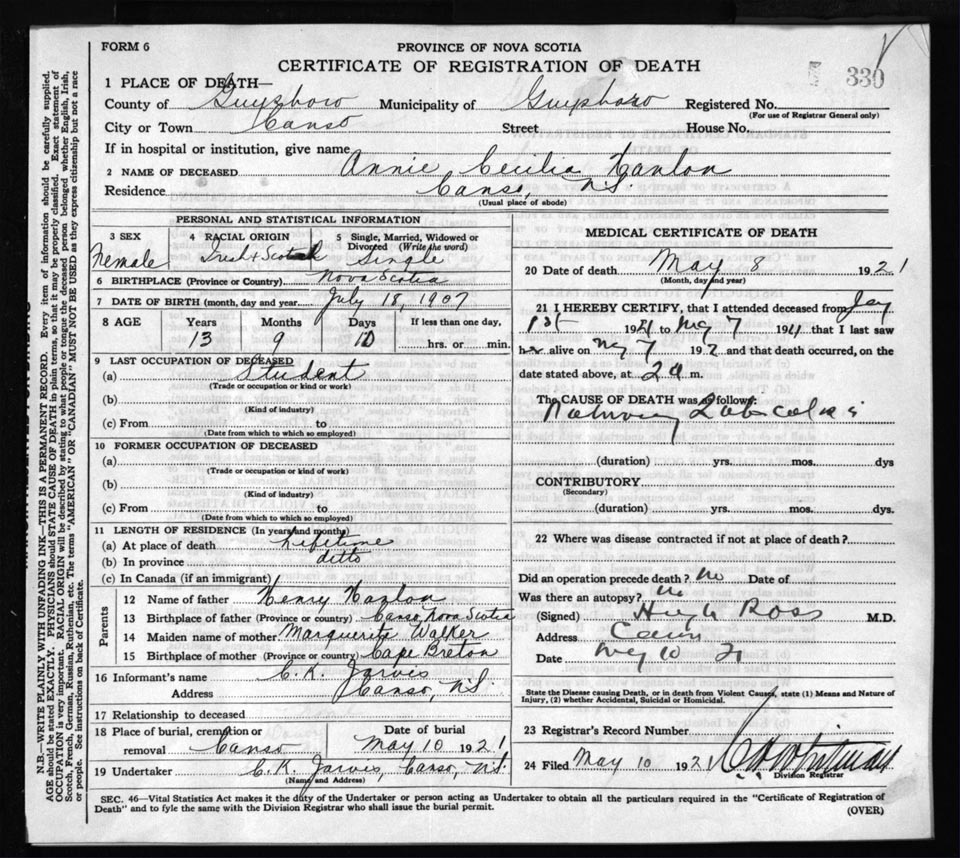 FORM 6
PROVINCE OF NOVA SCOTIA
CERTIFICATE OF REGISTRATION OF DEATH
330
1 PLACE OF DEATH—
County of Guysboro Municipality of Guysboro Registered No.
(For use of Registrar General only)
City or Town Canso Street House No.
If in hospital or institution, give name
2 NAME OF DECEASED Annie Cecilia Hanlon
Residence Canso, N.S.
(Usual place of abode)
PERSONAL AND STATISTICAL INFORMATION
3 SEX Female
4 RACIAL ORIGIN Irish & Scotch
5 Single, Married, Widowed or Divorced (Write the word) Single
6 BIRTHPLACE (Province or Country) Nova Scotia
7 DATE OF BIRTH (month, day and year) July 18, 1907
8 AGE Years Months Days If less than one day,
13 9 10 hrs. or min.
9 LAST OCCUPATION OF DECEASED
(a) Student
(Trade or occupation or kind of work)
(b)
(Kind of industry)
(c) From to
(Date from which to which so employed)
10 FORMER OCCUPATION OF DECEASED
(a)
(Trade or occupation or kind of work)
(b)
(Kind of industry)
(c) From to
(Date from which to which so employed)
11 LENGTH OF RESIDENCE (In years and months)
(a) At place of death Lifetime
(b) In province ditto
(c) In Canada (if an immigrant)
Parents
12 Name of father Henry Hanlon
13 Birthplace of father (Province or country) Canso, Nova Scotia
14 Maiden name of mother Marguerite Walker
15 Birthplace of mother (Province or country) Cape Breton
16 Informant's name C. K. Jarvis
Address Canso, N.S.
17 Relationship to deceased
18 Place of burial, cremation or removal Canso
Date of burial May 10 1921
19 Undertaker C. K. Jarvis, Canso, N.S.
(Name and Address)
MEDICAL CERTIFICATE OF DEATH
20 Date of death May 8 1921
(Month, day and year)
21 I HEREBY CERTIFY, that I attended deceased from
1921 to May 7 1921 that I last saw
her alive on May 7 192 and that death occurred, on the
date stated above, at 2 a m.
The CAUSE OF DEATH was as follows:
(duration) yrs. mos. dys
CONTRIBUTORY
(Secondary)
(duration) yrs. mos. dys.
22 Where was disease contracted if not at place of death?
Did an operation precede death? no Date of
Was there an autopsy? no
(Signed) Hugh Ross M.D.
Address Canso
Date May 10 21
State the Disease causing Death, or in death from Violent Causes, state (1) Means and Nature of
Injury, (2) whether Accidental, Suicidal or Homicidal.
23 Registrar's Record Number
24 Filed May 10 1921
Division Registrar
SEC. 46—Vital Statistics Act makes it the duty of the Undertaker or person acting as Undertaker to obtain all the particulars required in the "Certificate of Registration of
Death" and to fyle the same with the Division Registrar who shall issue the burial permit.
(OVER)
N.B.—WRITE PLAINLY WITH UNFADING INK—THIS IS A PERMANENT RECORD. Every item of information should be carefully supplied.
AGE should be stated EXACTLY. PHYSICIANS should STATE CAUSE OF DEATH in plain terms, so that it may be properly classified. Exact statement of
OCCUPATION is very important. RACIAL ORIGIN will be described by stating to what people or tongue the deceased person belonged whether English, Irish,
Scotch, French, German, Russian, Ruthenian, etc. The terms "AMERICAN" OR "CANADIAN" MUST NOT BE USED as they express citizenship but not a race
or people. See instructions on back of Certificate.